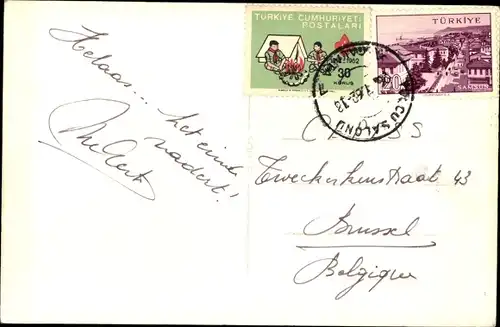 Helaas... het einde
nadert!
TÜRKİYE CUMHURİYETİ
POSTALARI
30
KURUŞ
TÜRKİYE
20
SAMSUN
YOLCU SALONU
Tweekerkenstraat 43
Brussel
Belgique